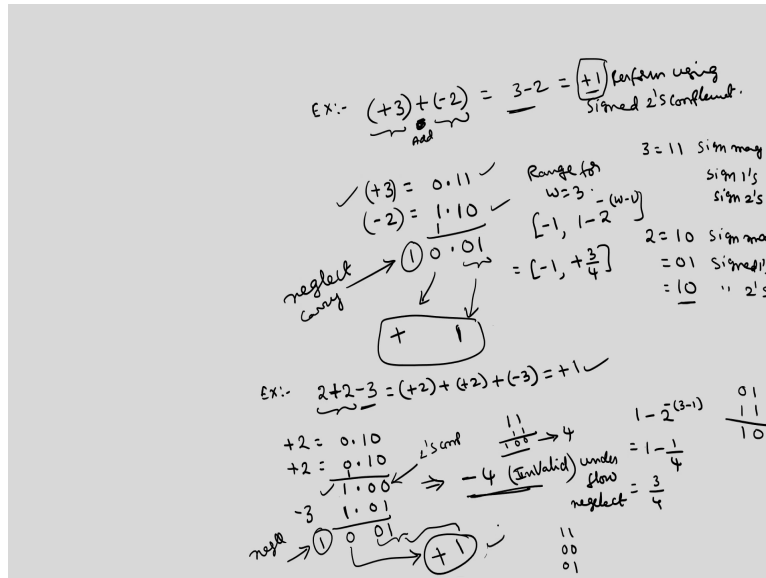 Ex:- (+3) + (-2) = 3-2 = +1 Perform using
Add
Signed 2's complement.
3 = 11 Sign mag
Sign 1's
Sign 2's
(+3) = 0.11
(-2) = 1.10
1 0.01
neglect
carry
+ 1
Range for
W=3.
[-1, 1-2^-(W-1)]
= [-1, +3/4]
2 = 10 Sign ma
= 01 Signed 1'
= 10 " 2's
Ex:- 2+2-3 = (+2) + (+2) + (-3) = +1
+2 = 0.10
+2 = 0.10
1.00
2's comp
-3 1.01
1 0 01
+1
11
11
100 → 4
⇒ -4 (Invalid) under
flow
neglect
1-2^-(3-1)
= 1-1/4
= 3/4
01
11
10
11
00
01